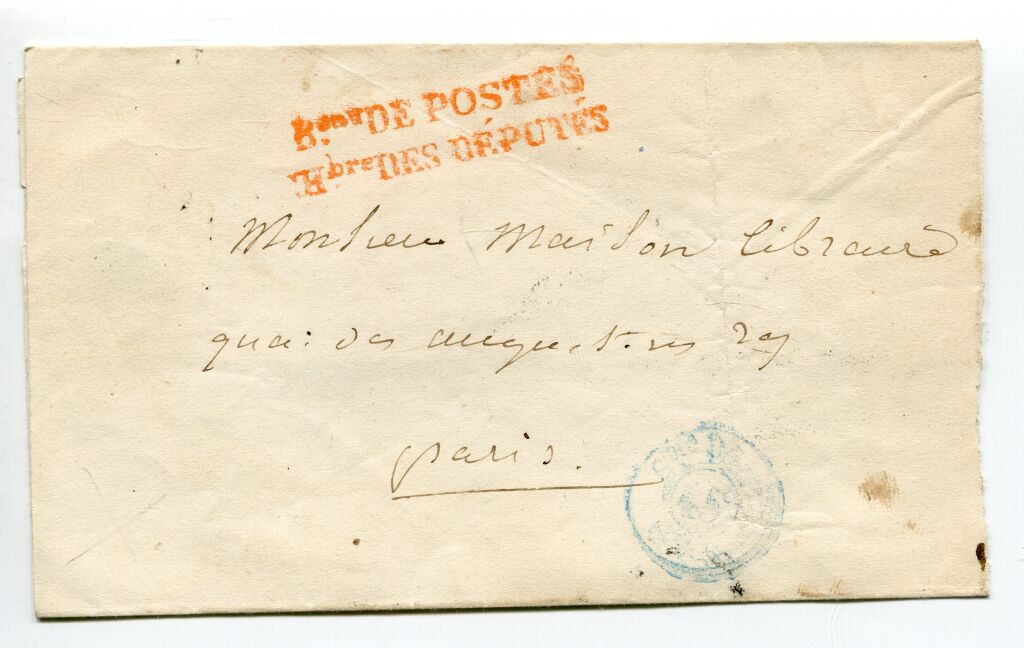 Beau DE POSTES
Chbre DES DÉPUTÉS
Monsieur Maison libraire
quai des augustins 29
paris.